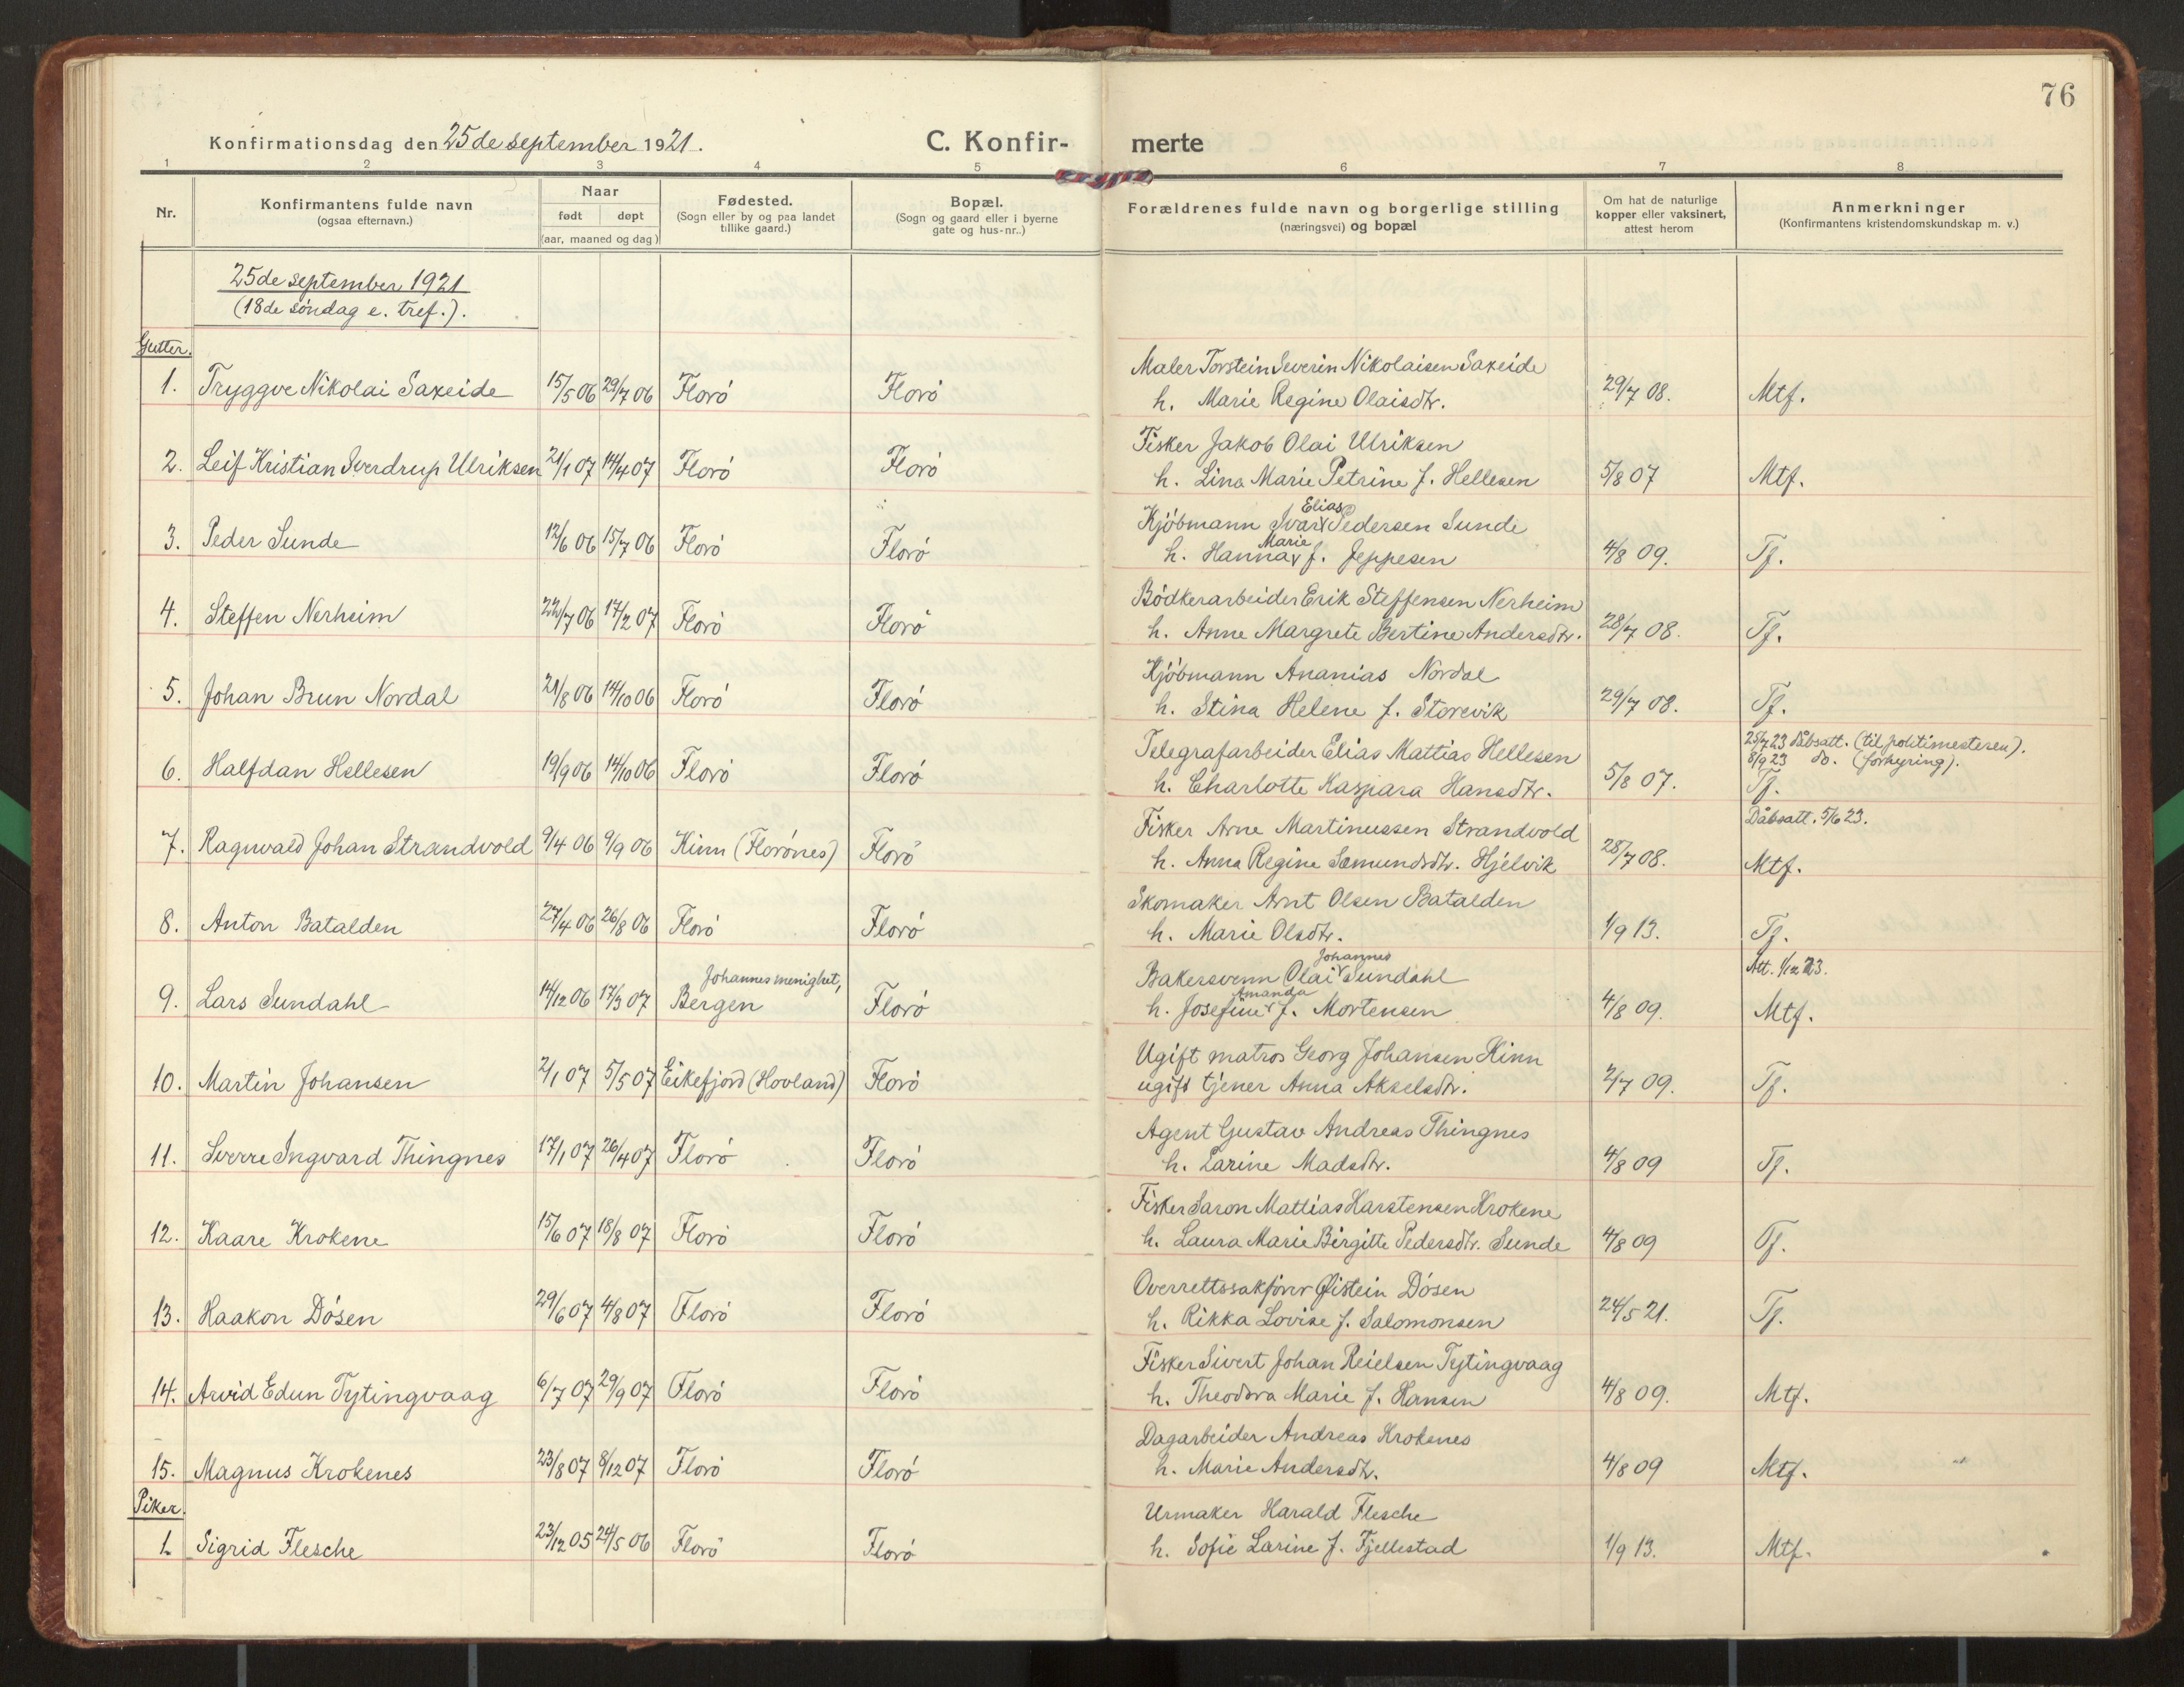 76
Konfirmationsdag den 25de september 1921.
C. Konfir-merte
1 2 3 4 5 6 7 8
Nr.
Konfirmantens fulde navn
(ogsaa efternavn.)
Naar
født døpt
(aar, maaned og dag)
Fødested.
(Sogn eller by og paa landet
tillike gaard.)
Bopæl.
(Sogn og gaard eller i byerne
gate og hus-nr..)
Forældrenes fulde navn og borgerlige stilling
(næringsvei) og bopæl
Om hat de naturlige
kopper eller vaksinert,
attest herom
Anmerkninger
(Konfirmantens kristendomskundskap m. v.)
25de september 1921
(18de søndag e. tref.).
Gutter.
Maler Torstein Severin Nikolaisen Saxeide
1. Tryggve Nikolai Saxeide 15/5 06 29/7 06 Florø Florø h. Marie Regine Olaisdtr. 29/7 08. Mtf.
Fisker Jakob Olai Ulriksen
2. Leif Kristian Sverdrup Ulriksen 21/1 07 14/4 07 Florø Florø h. Lina Marie Petrine f. Hellesen 5/8 07 Mtf.
Elias
Kjøbmann Ivar Pedersen Sunde
Marie
3. Peder Sunde 12/6 06 15/7 06 Florø Florø h. Hanna f. Jeppesen 4/8 09. Tf.
Bødkerarbeider Erik Steffensen Nerheim
4. Steffen Nerheim 22/7 06 17/2 07 Florø Florø h. Anne Margrete Bertine Andersdtr. 28/7 08. Tf.
Kjøbmann Ananias Nordal
5. Johan Brun Nordal 21/8 06 14/10 06 Florø Florø h. Stina Helene f. Storevik 29/7 08. Tf.
Telegrafarbeider Elias Mattias Hellesen 25/7 23 dåbsatt. (til politimesteren).
8/9 23 do. (forhyring).
6. Halfdan Hellesen 19/9 06 14/10 06 Florø Florø h. Charlotte Kaspara Hansdtr. 5/8 07. Tf.
Fisker Arne Martinussen Strandvold Dåbsatt. 5/6 23.
7. Ragnvald Johan Strandvold 9/4 06 9/9 06 Kinn (Florønes) Florø h. Anna Regine Sæmundsdtr. Hjelvik 28/7 08. Mtf.
Skomaker Arnt Olsen Batalden
8. Anton Batalden 27/4 06 26/8 06 Florø Florø h. Marie Olsdtr. 1/9 13. Tf.
Johannes
Johannes menighet, Bakersvenn Olai Sundahl Att. 1/12 23.
Amanda
9. Lars Sundahl 14/12 06 17/3 07 Bergen Florø h. Josefine f. Mortensen 4/8 09. Mtf.
Ugift matros Georg Johansen Kinn
10. Martin Johansen 2/1 07 5/5 07 Eikefjord (Hovland) Florø ugift tjener Anna Akselsdtr. 2/7 09. Tf.
Agent Gustav Andreas Thingnes
11. Sverre Ingvard Thingnes 17/1 07 26/4 07 Florø Florø h. Larine Madsdtr. 4/8 09 Tf.
Fisker Saron Mattias Karstensen Krokene
12. Kaare Krokene 15/6 07 18/8 07 Florø Florø h. Laura Marie Birgitte Pedersdtr. Sunde 4/8 09 Tf.
Overrettssakfører Øistein Døsen
13. Haakon Døsen 29/6 07 4/8 07 Florø Florø h. Rikka Lovise f. Salomonsen 24/5 21. Tf.
Fisker Sivert Johan Reielsen Tytingvaag
14. Arvid Edun Tytingvaag 6/7 07 29/9 07 Florø Florø h. Theodora Marie f. Hansen 4/8 09. Mtf.
Dagarbeider Andreas Krokenes
15. Magnus Krokenes 23/8 07 8/12 07 Florø Florø h. Marie Andersdtr. 4/8 09 Mtf.
Piker.
Urmaker Harald Flesche
1. Sigrid Flesche 23/12 05 24/5 06 Florø Florø h. Sofie Larine f. Fjellestad 1/9 13. Mtf.